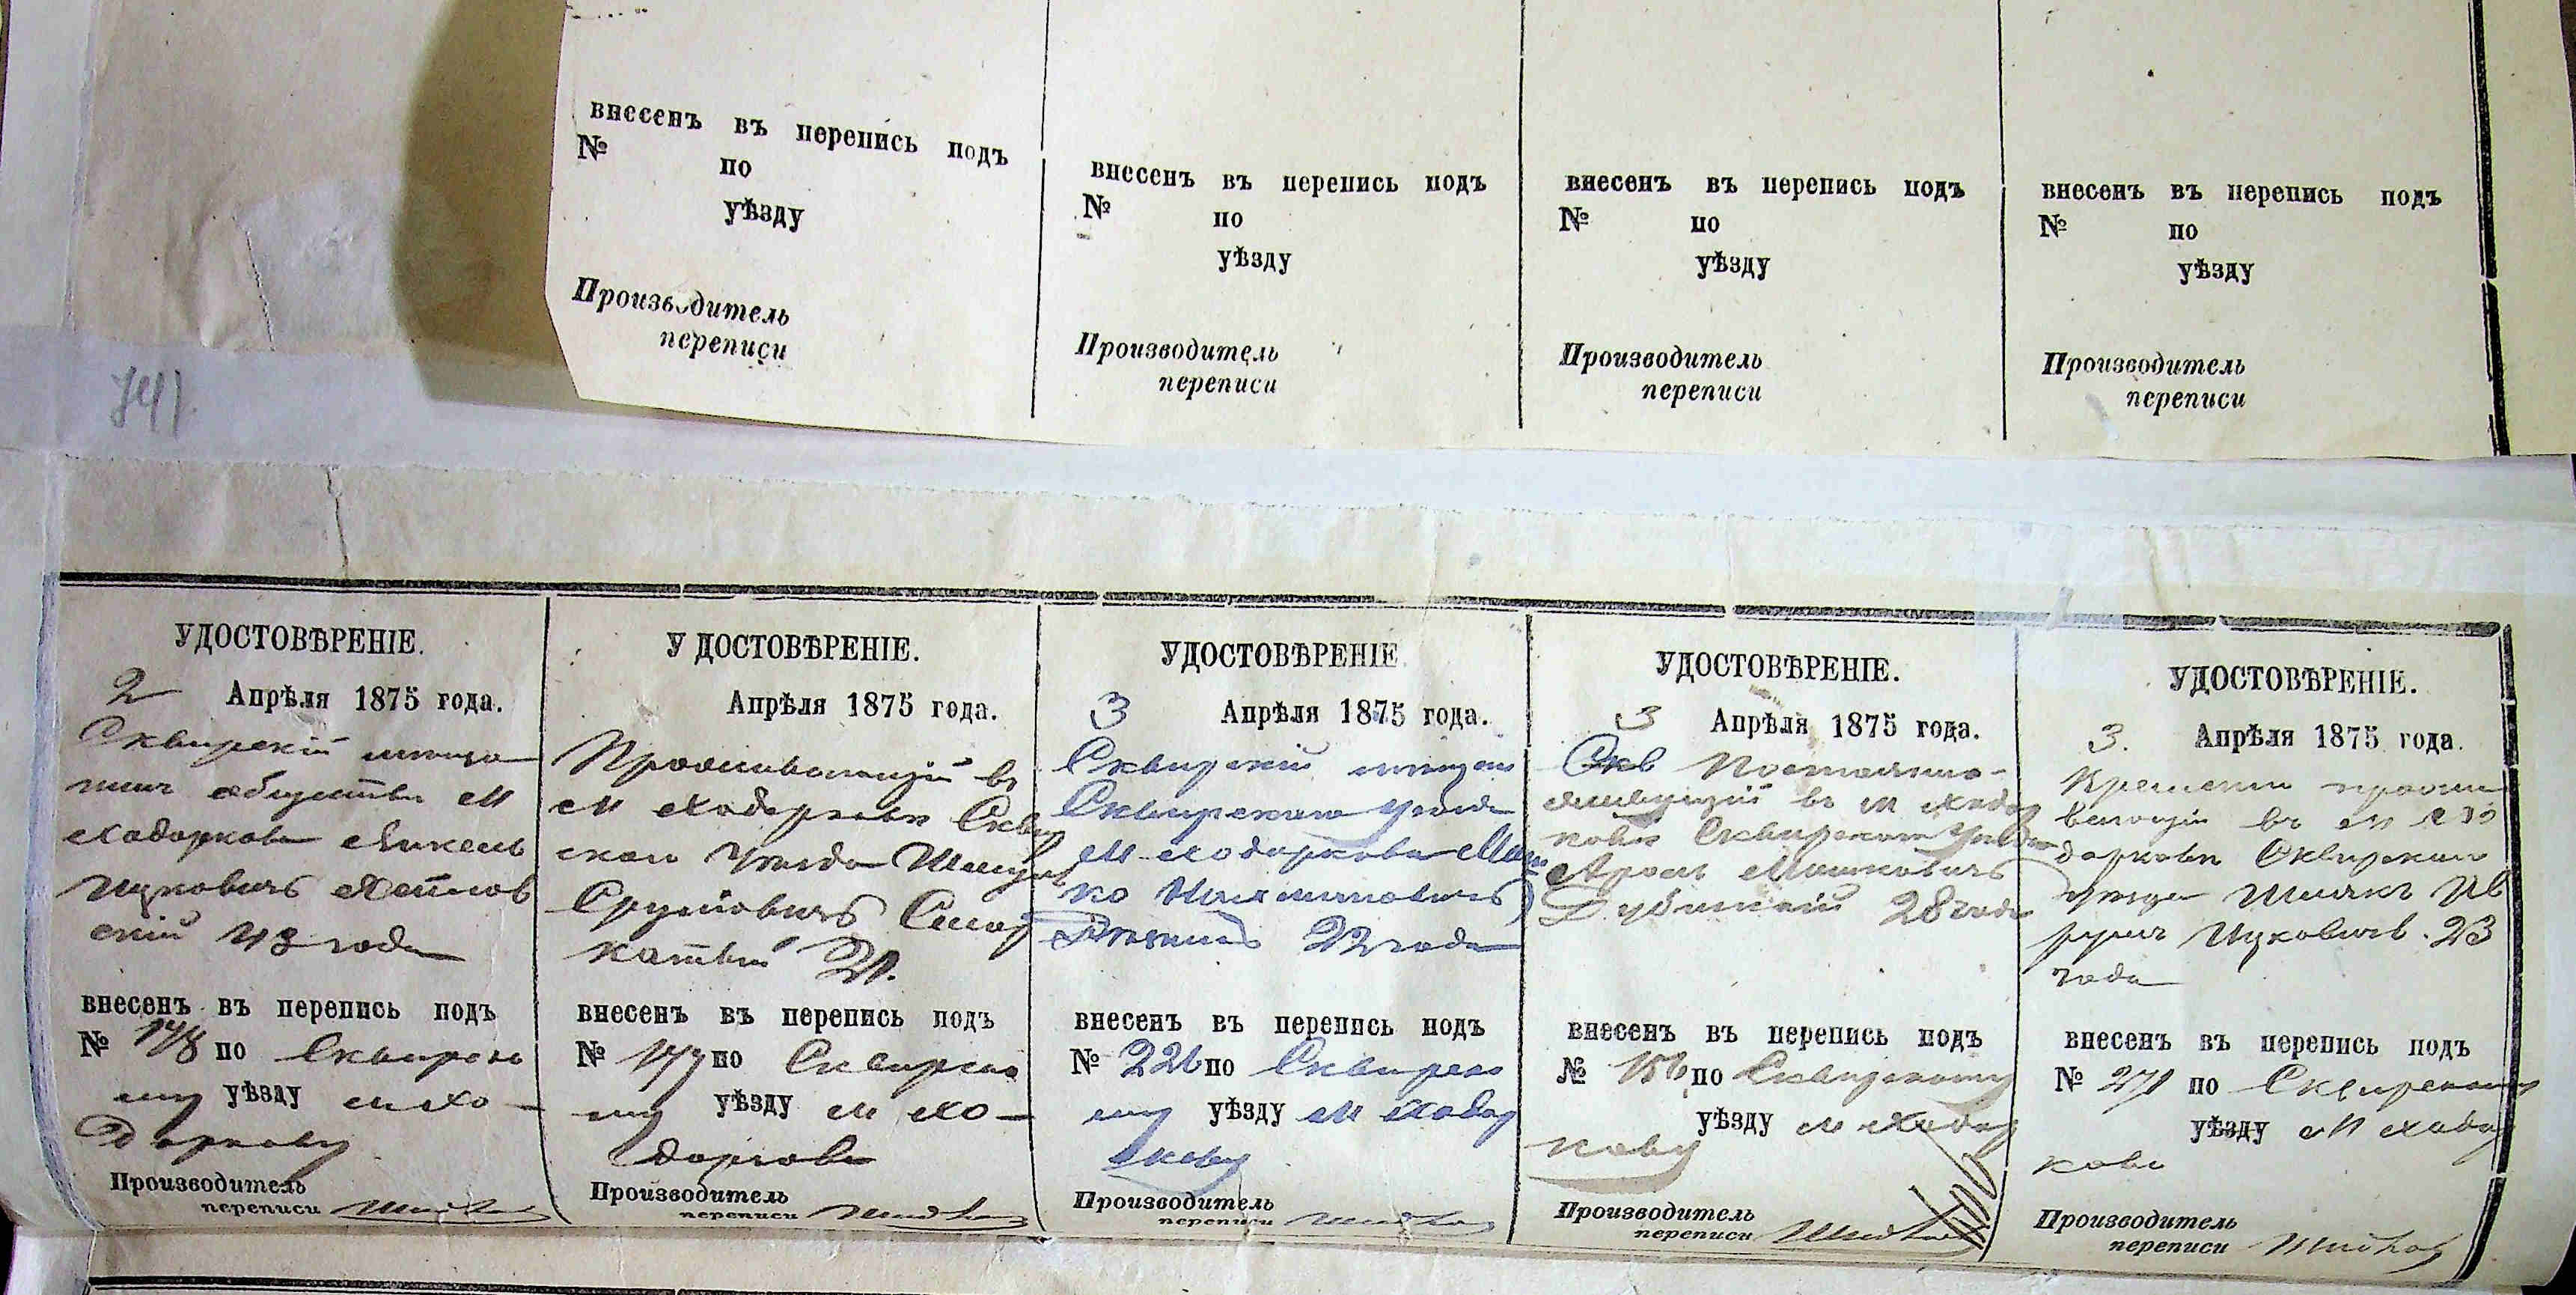 внесенъ въ перепись подъ
№ по
уѣзду
Производитель
переписи
внесенъ въ перепись подъ
№ по
уѣзду
Производитель
переписи
внесенъ въ перепись подъ
№ по
уѣзду
Производитель
переписи
внесенъ въ перепись подъ
№ по
уѣзду
Производитель
переписи
УДОСТОВѢРЕНІЕ.
2 Апрѣля 1875 года.
Сквирскій мѣща
нинъ общества М
Ходоркова
Ицковичъ
скій 43 года
внесенъ въ перепись подъ
№ 148 по Сквирско
му уѣзду м Хо-
доркову
Производитель
переписи
УДОСТОВѢРЕНІЕ.
Апрѣля 1875 года.
Проживающій въ
м Ходорковѣ Сквир
скаго Уѣзда
Сруліовичъ
21.
внесенъ въ перепись подъ
№ 177 по Сквирско
му уѣзду м Хо-
доркову
Производитель
переписи
УДОСТОВѢРЕНІЕ
3 Апрѣля 1875 года.
Сквирскій мѣщан
Сквирскаго уѣзда
м Ходоркова Мош
ко Нахмановичъ
22 года
внесенъ въ перепись подъ
№ 226 по Сквирско
му уѣзду м Ходор
кову
Производитель
переписи
УДОСТОВѢРЕНІЕ.
3 Апрѣля 1875 года.
Скв Постоянно
живущій въ м Ходор
ковѣ Сквирскаго Уѣзда
Аронъ Мошковичъ
Дубинскій 28 года
внесенъ въ перепись подъ
№ 156 по Сквирскому
уѣзду м Ходор
кову
Производитель
переписи
УДОСТОВѢРЕНІЕ.
3. Апрѣля 1875 года.
Временно прожи
вающій въ м Хо
дорковѣ Сквирскаго
Уѣзда
Ицковичъ. 23
года
внесенъ въ перепись подъ
№ 271 по Сквирскому
уѣзду М Ходор
кову
Производитель
переписи